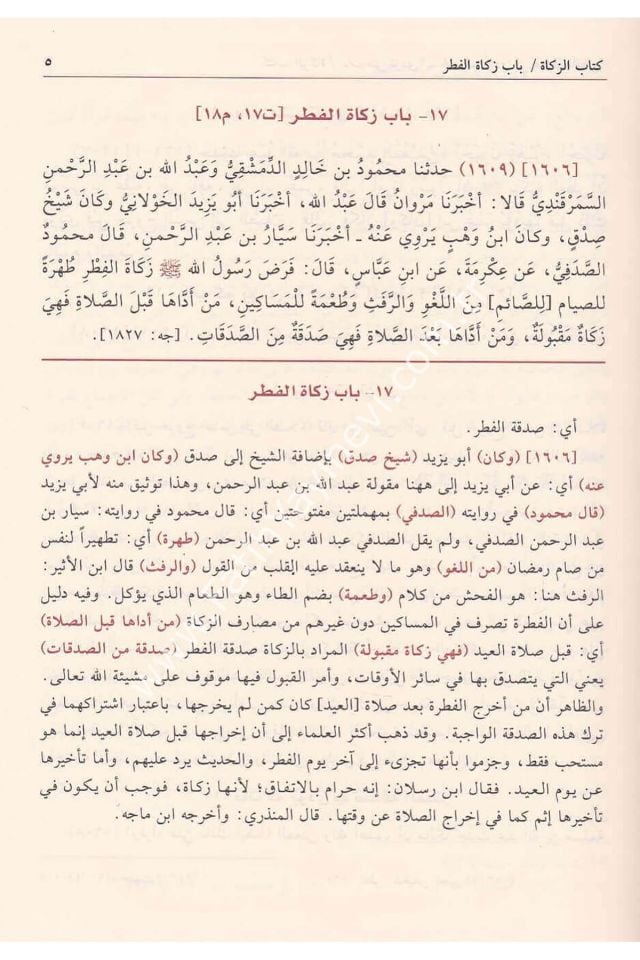 كتاب الزكاة/ باب زكاة الفطر ٥
١٧- باب زكاة الفطر [ت١٧، م١٨]
[١٦٠٦] (١٦٠٩) حدثنا محمُودُ بن خَالِدٍ الدِّمَشْقِيُّ وَعَبْدُ الله بن عَبْدِ الرَّحْمنِ
السَّمَرْقَنْدِيُّ قَالا: أخْبَرَنَا مَرْوانُ قَالَ عَبْدُ الله، أخْبَرَنَا أبُو يَزِيدَ الخَوْلانِيُّ وَكَانَ شَيْخُ
صِدْقٍ، وكانَ ابنُ وَهْبٍ يَرْوِي عَنْهُ ـ أخْبَرَنَا سَيَّارُ بن عَبْدِ الرَّحْمنِ، قَالَ مَحمُودٌ
الصَّدَفِيُّ، عَن عِكْرِمَةَ، عَن ابنِ عَبَّاسٍ، قَالَ: فَرَضَ رَسُولُ الله ﷺ زَكَاةَ الفِطْرِ طُهْرَةً
للصيامِ [لِلصَّائمِ] مِنَ اللَّغْوِ وَالرَّفَثِ وَطُعْمَةً لِلْمَسَاكِينِ، مَنْ أدَّاهَا قَبْلَ الصَّلاةِ فَهِيَ
زَكَاةٌ مَقْبُولَةٌ، وَمَنْ أدَّاهَا بَعْدَ الصَّلاةِ فَهِيَ صَدَقَةٌ مِنَ الصَّدَقَاتِ. [جه: ١٨٢٧].
١٧- باب زكاة الفطر
أي: صدقة الفطر.
[١٦٠٦] (وكان) أبو يزيد (شيخ صدق) بإضافة الشيخ إلى صدق (وكان ابن وهب يروي
عنه) أي: عن أبي يزيد إلى ههنا مقولة عبد الله بن عبد الرحمن، وهذا توثيق منه لأبي يزيد
(قال محمود) في روايته (الصدفي) بمهملتين مفتوحتين أي: قال محمود في روايته: سيار بن
عبد الرحمن الصدفي، ولم يقل الصدفي عبد الله بن عبد الرحمن (طهرة) أي: تطهيراً لنفس
من صام رمضان (من اللغو) وهو ما لا ينعقد عليه القلب من القول (والرفث) قال ابن الأثير:
الرفث هنا: هو الفحش من كلام (وطعمة) بضم الطاء وهو الطعام الذي يؤكل. وفيه دليل
على أن الفطرة تصرف في المساكين دون غيرهم من مصارف الزكاة (من أداها قبل الصلاة)
أي: قبل صلاة العيد (فهي زكاة مقبولة) المراد بالزكاة صدقة الفطر (صدقة من الصدقات)
يعني التي يتصدق بها في سائر الأوقات، وأمر القبول فيها موقوف على مشيئة الله تعالى.
والظاهر أن من أخرج الفطرة بعد صلاة [العيد] كان كمن لم يخرجها، باعتبار اشتراكهما في
ترك هذه الصدقة الواجبة. وقد ذهب أكثر العلماء إلى أن إخراجها قبل صلاة العيد إنما هو
مستحب فقط، وجزموا بأنها تجزىء إلى آخر يوم الفطر، والحديث يرد عليهم، وأما تأخيرها
عن يوم العيد. فقال ابن رسلان: إنه حرام بالاتفاق؛ لأنها زكاة، فوجب أن يكون في
تأخيرها إثم كما في إخراج الصلاة عن وقتها. قال المنذري: وأخرجه ابن ماجه.